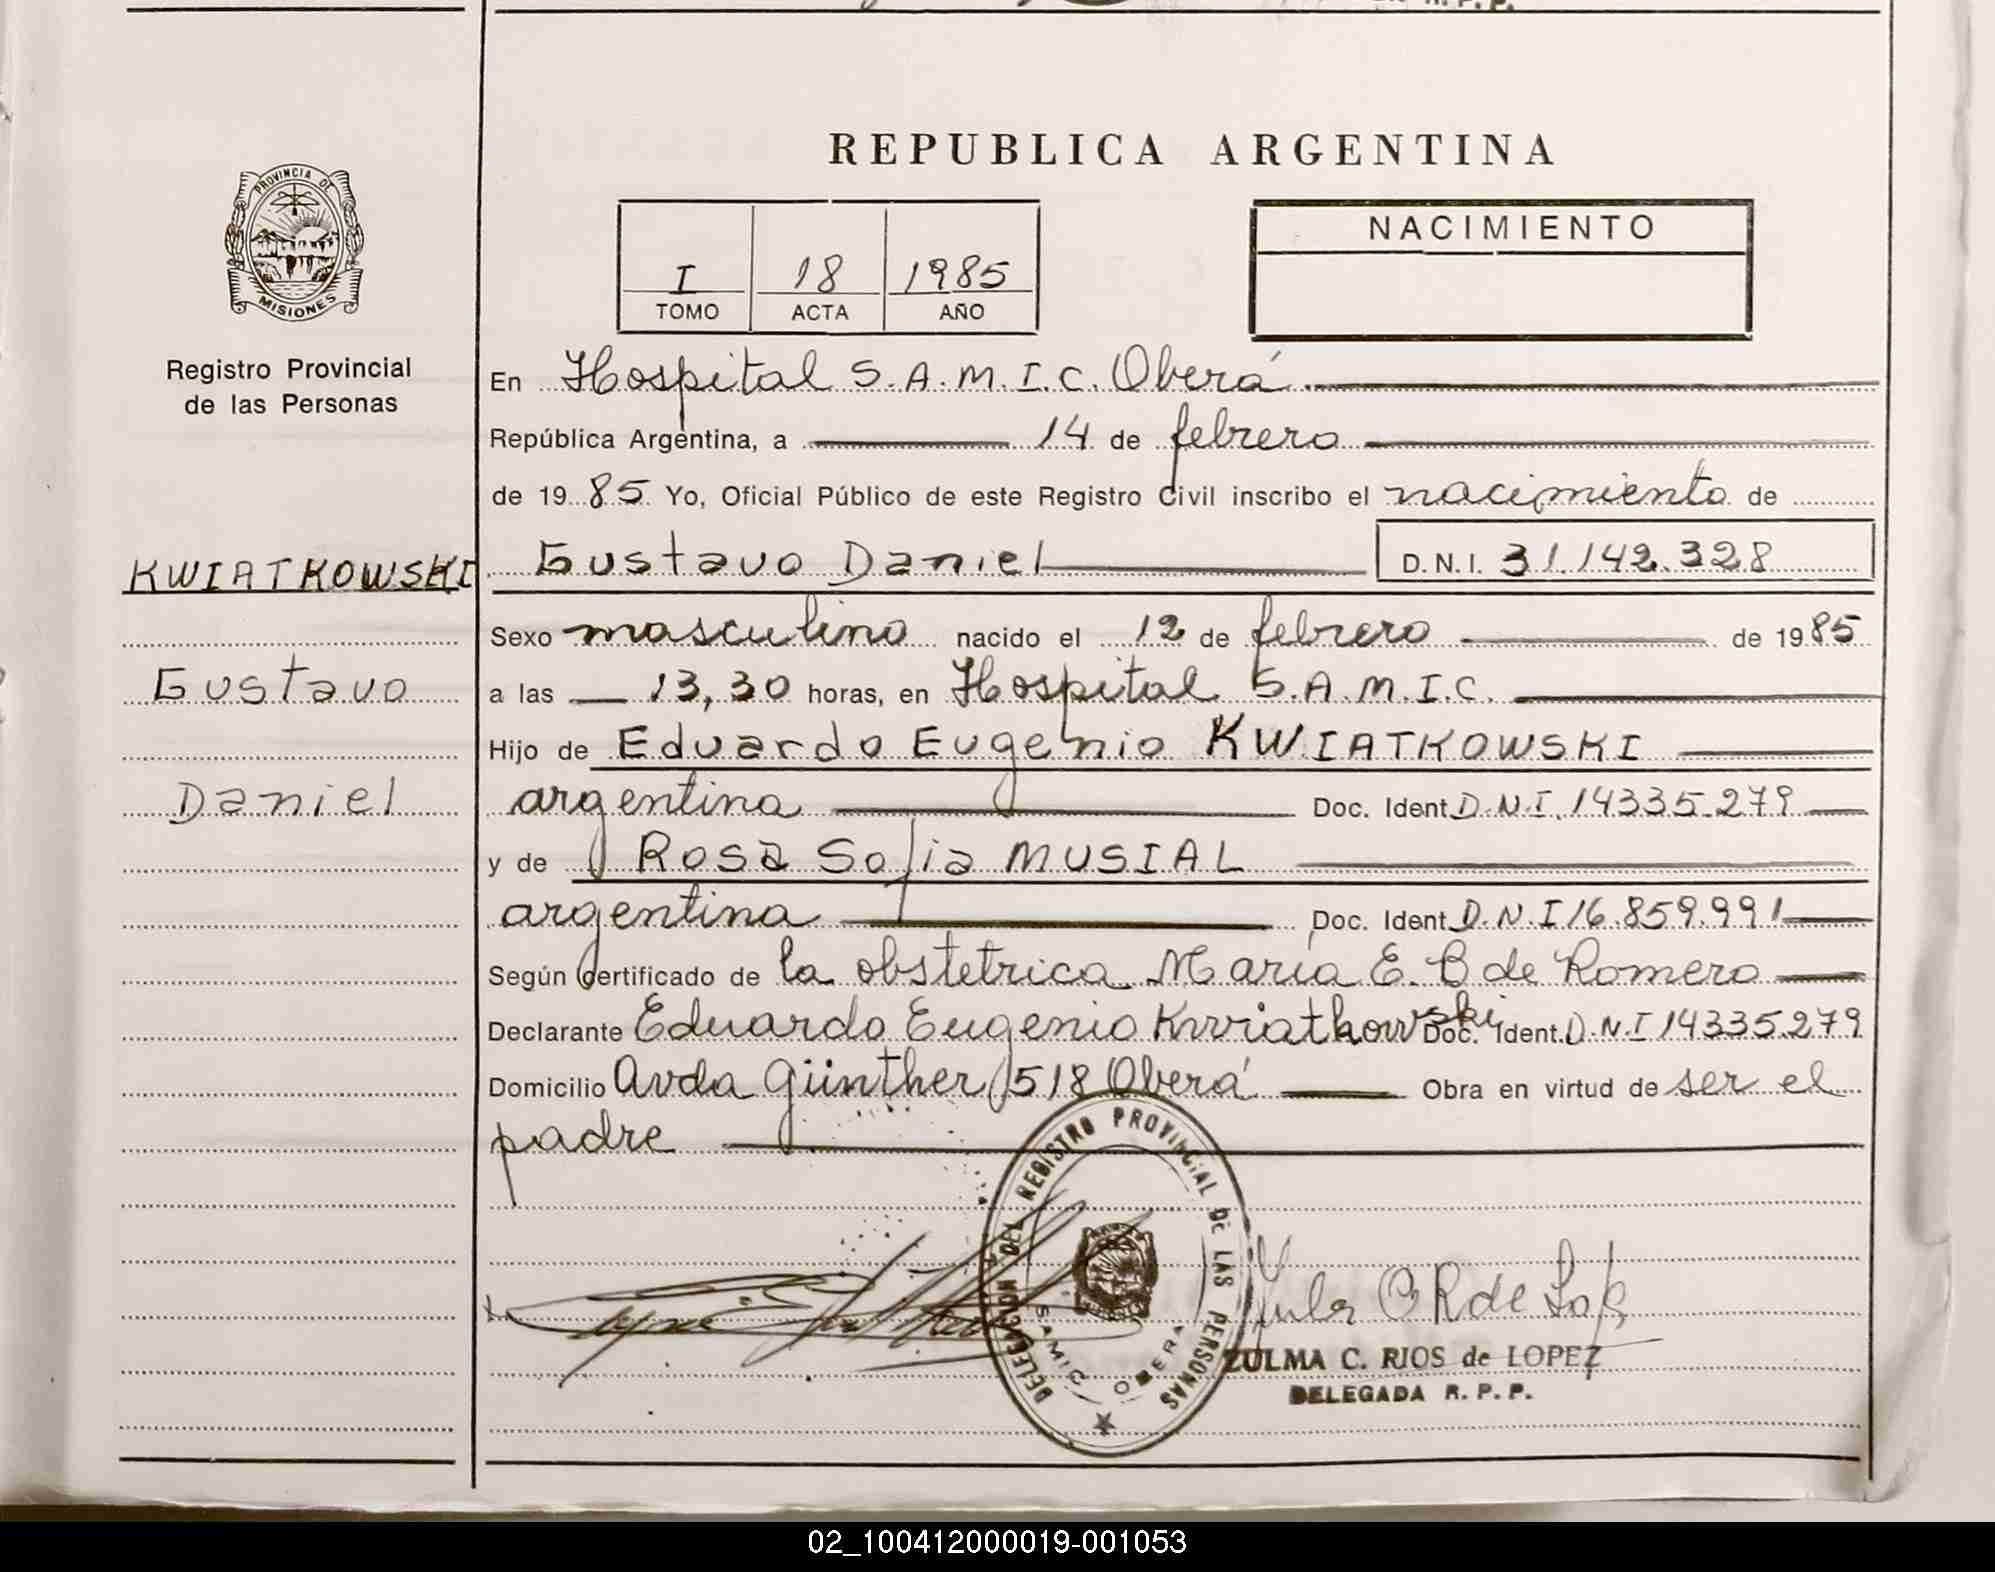 REPUBLICA ARGENTINA
PROVINCIA DE
MISIONES
Registro Provincial
de las Personas
I 18 1985
TOMO ACTA AÑO
NACIMIENTO
En Hospital S.A.M.I.C. Oberá
República Argentina, a 14 de febrero
de 1985 Yo, Oficial Público de este Registro Civil inscribo el nacimiento de
KWIATKOWSKI Gustavo Daniel D.N.I. 31.142.328
Sexo masculino nacido el 12 de febrero de 1985
Gustavo a las 13,30 horas, en Hospital S.A.M.I.C.
Hijo de Eduardo Eugenio KWIATKOWSKI
Daniel argentina Doc. Ident. D.N.I. 14335.279
y de Rosa Sofia MUSIAL
argentina Doc. Ident. D.N.I 16.859.991
Según certificado de la obstetrica Maria E. B de Romero
Declarante Eduardo Eugenio Kwiatkowski Doc. Ident. D.N.I 14335.279
Domicilio Avda Günther 1518 Oberá Obra en virtud de ser el
padre
DELEGACION DEL REGISTRO PROVINCIAL DE LAS PERSONAS
SAMIC OBERA
ZULMA C. RIOS de LOPEZ
DELEGADA R. P. P.
02_100412000019-001053